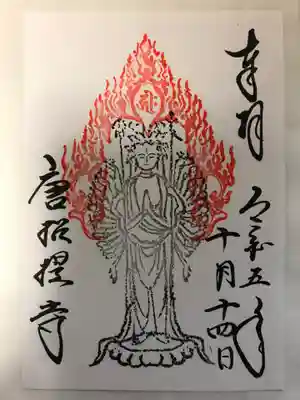 奉拝
令和五年
十月十四日
唐招提寺